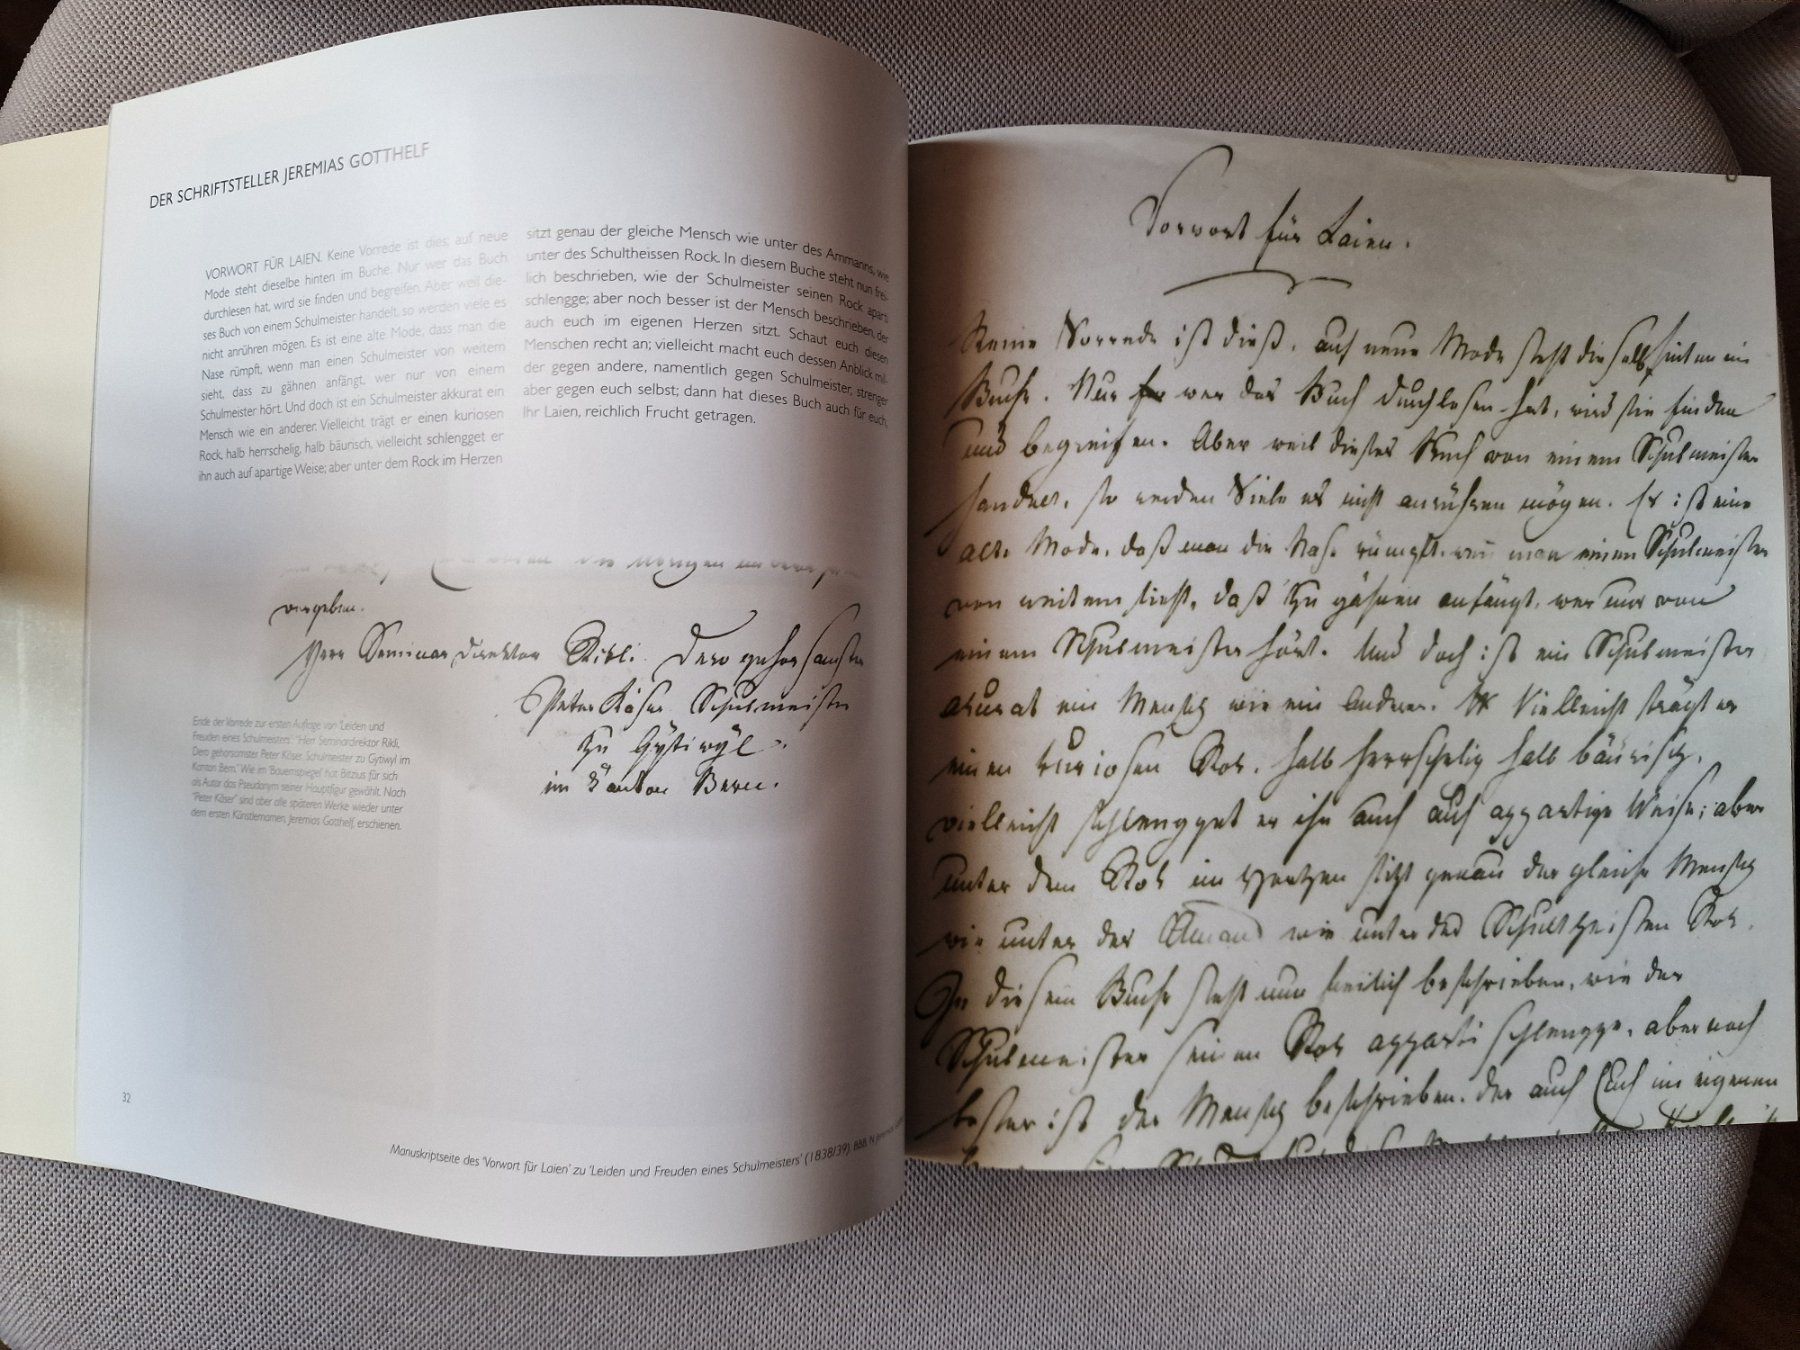 DER SCHRIFTSTELLER JEREMIAS GOTTHELF
VORWORT FÜR LAIEN. Keine Vorrede ist dies; auf neue
Mode steht dieselbe hinten im Buche. Nur wer das Buch
durchlesen hat, wird sie finden und begreifen. Aber weil die-
ses Buch von einem Schulmeister handelt, so werden viele es
nicht anrühren mögen. Es ist eine alte Mode, dass man die
Nase rümpft, wenn man einen Schulmeister von weitem
sieht, dass zu gähnen anfängt, wer nur von einem
Schulmeister hört. Und doch ist ein Schulmeister akkurat ein
Mensch wie ein anderer. Vielleicht trägt er einen kuriosen
Rock, halb herrschelig, halb bäurisch, vielleicht schlengget er
ihn auch auf apartige Weise; aber unter dem Rock im Herzen
sitzt genau der gleiche Mensch wie unter des Ammanns, wie
unter des Schultheissen Rock. In diesem Buche steht nun frei-
lich beschrieben, wie der Schulmeister seinen Rock aparti
schlengge; aber noch besser ist der Mensch beschrieben, der
auch euch im eigenen Herzen sitzt. Schaut euch diesen
Menschen recht an; vielleicht macht euch dessen Anblick mil-
der gegen andere, namentlich gegen Schulmeister, strenger
aber gegen euch selbst; dann hat dieses Buch auch für euch,
Ihr Laien, reichlich Frucht getragen.
vergeben.
Herr Seminar Direktor Rikli. Dero gehorsamster
Peter Käser Schulmeister
zu Gytiwyl
im Kanton Bern.
Ende der Vorrede zur ersten Auflage von 'Leiden und
Freuden eines Schulmeisters': "Herr Seminardirektor Rikli,
Dero gehorsamster Peter Käser, Schulmeister zu Gytiwyl im
Kanton Bern." Wie im 'Bauernspiegel' hat Bitzius für sich
als Autor das Pseudonym seiner Hauptfigur gewählt. Nach
'Peter Käser' sind aber alle späteren Werke wieder unter
dem ersten Künstlernamen, Jeremias Gotthelf, erschienen.
32
Manuskriptseite des 'Vorwort für Laien' zu 'Leiden und Freuden eines Schulmeisters' (1838/39). BBB N Jeremias
Vorwort für Laien.
Keine Vorrede ist dieß, auf neue Mode steht dieselbe hinten im
Buche. Nur wer das Buch durchlesen hat, wird sie finden
und begreifen. Aber weil dieses Buch von einem Schulmeister
handelt, so werden Viele es nicht anrühren mögen. Es ist eine
alte Mode, daß man die Nase rümpft, wenn man einen Schulmeister
von weitem sieht, daß zu gähnen anfängt, wer nur von
einem Schulmeister hört. Und doch ist ein Schulmeister
akurat ein Mensch wie ein Anderer. Vielleicht trägt er
einen kuriosen Rok, halb herrschelig halb bäurisch,
vielleicht schlengget er ihn auch auf appartige Weise; aber
unter dem Rok im Hertzen sitzt genau der gleiche Mensch
wie unter des Amans wie unter des Schultheissen Rok.
In diesem Buche steht nun freilich beschrieben, wie der
Schulmeister seinen Rok apparti schlengge, aber noch
besser ist der Mensch beschrieben, der auch Euch im eigenen